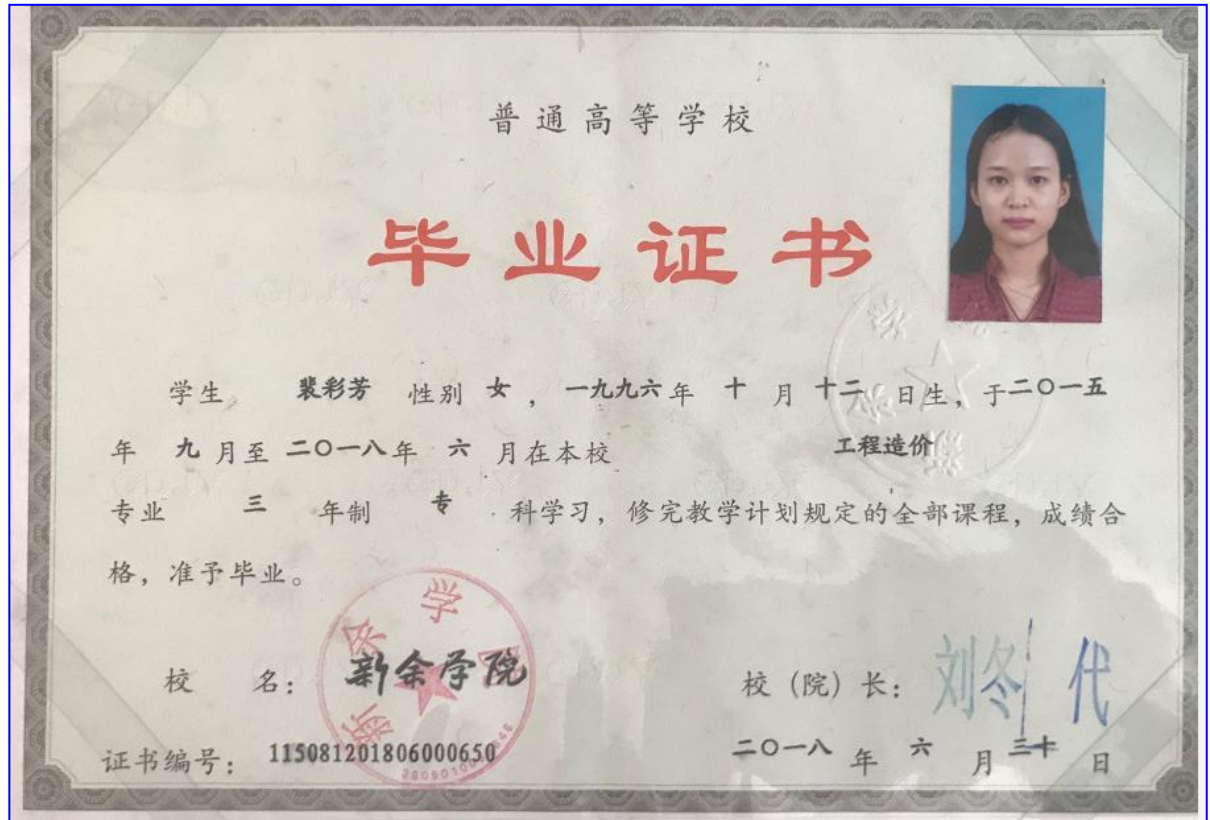 普通高等学校
毕业证书
学生 裴彩芳 性别 女，一九九六年 十 月 十二 日生，于二〇一五
年 九 月至 二〇一八年 六 月在本校 工程造价
专业 三 年制 专 科学习，修完教学计划规定的全部课程，成绩合
格，准予毕业。
校 名：新余学院 校（院）长：刘冬 代
新余学院
证书编号：115081201806000650 二〇一八 年 六 月 三十 日